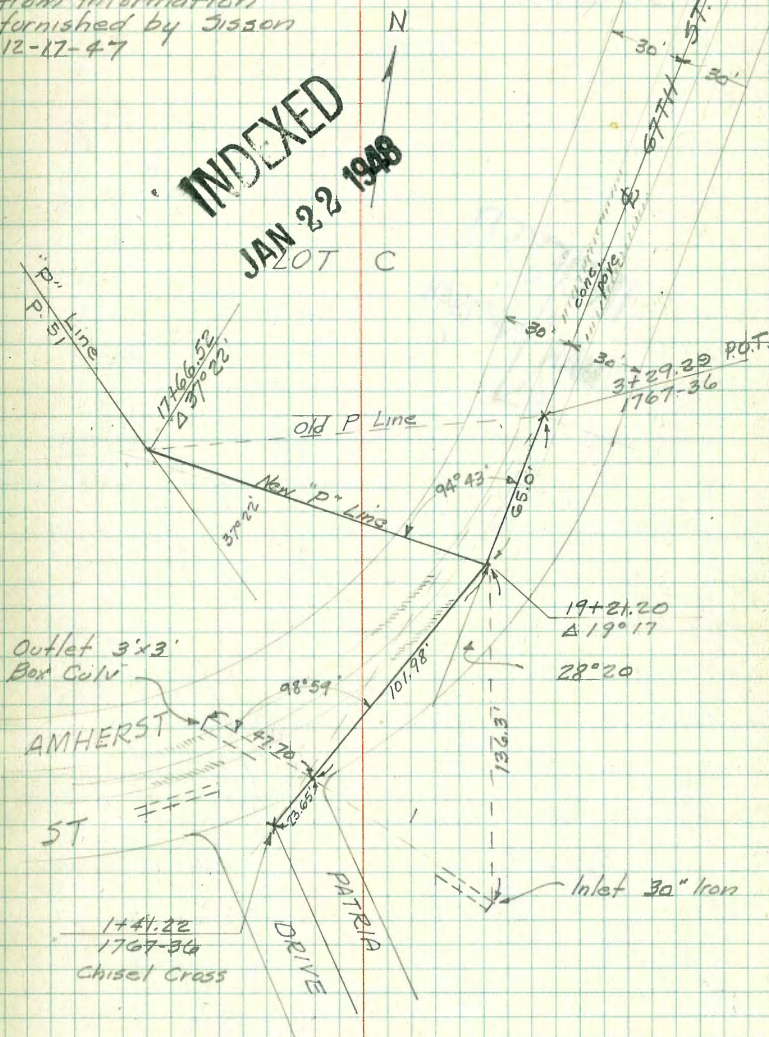 from information
furnished by Sisson
12-17-47
N
INDEXED
JAN 22 1948
LOT C
67TH ST.
30'
30'
℄
conc.
pave
30'
30'
3+29.29 P.O.T.
1767-36
"P" Line
P. 51
17+66.52
Δ 37° 22'
Old P Line
New "P" Line
37° 22'
94° 43'
65.0'
19+21.20
Δ 19° 17
28° 20
Outlet 3'x3'
Box Culv
98° 59'
101.98'
136.3'
AMHERST
ST
47.70
23.65'
PATRIA
DRIVE
Inlet 30" Iron
1+41.22
1767-36
Chisel Cross